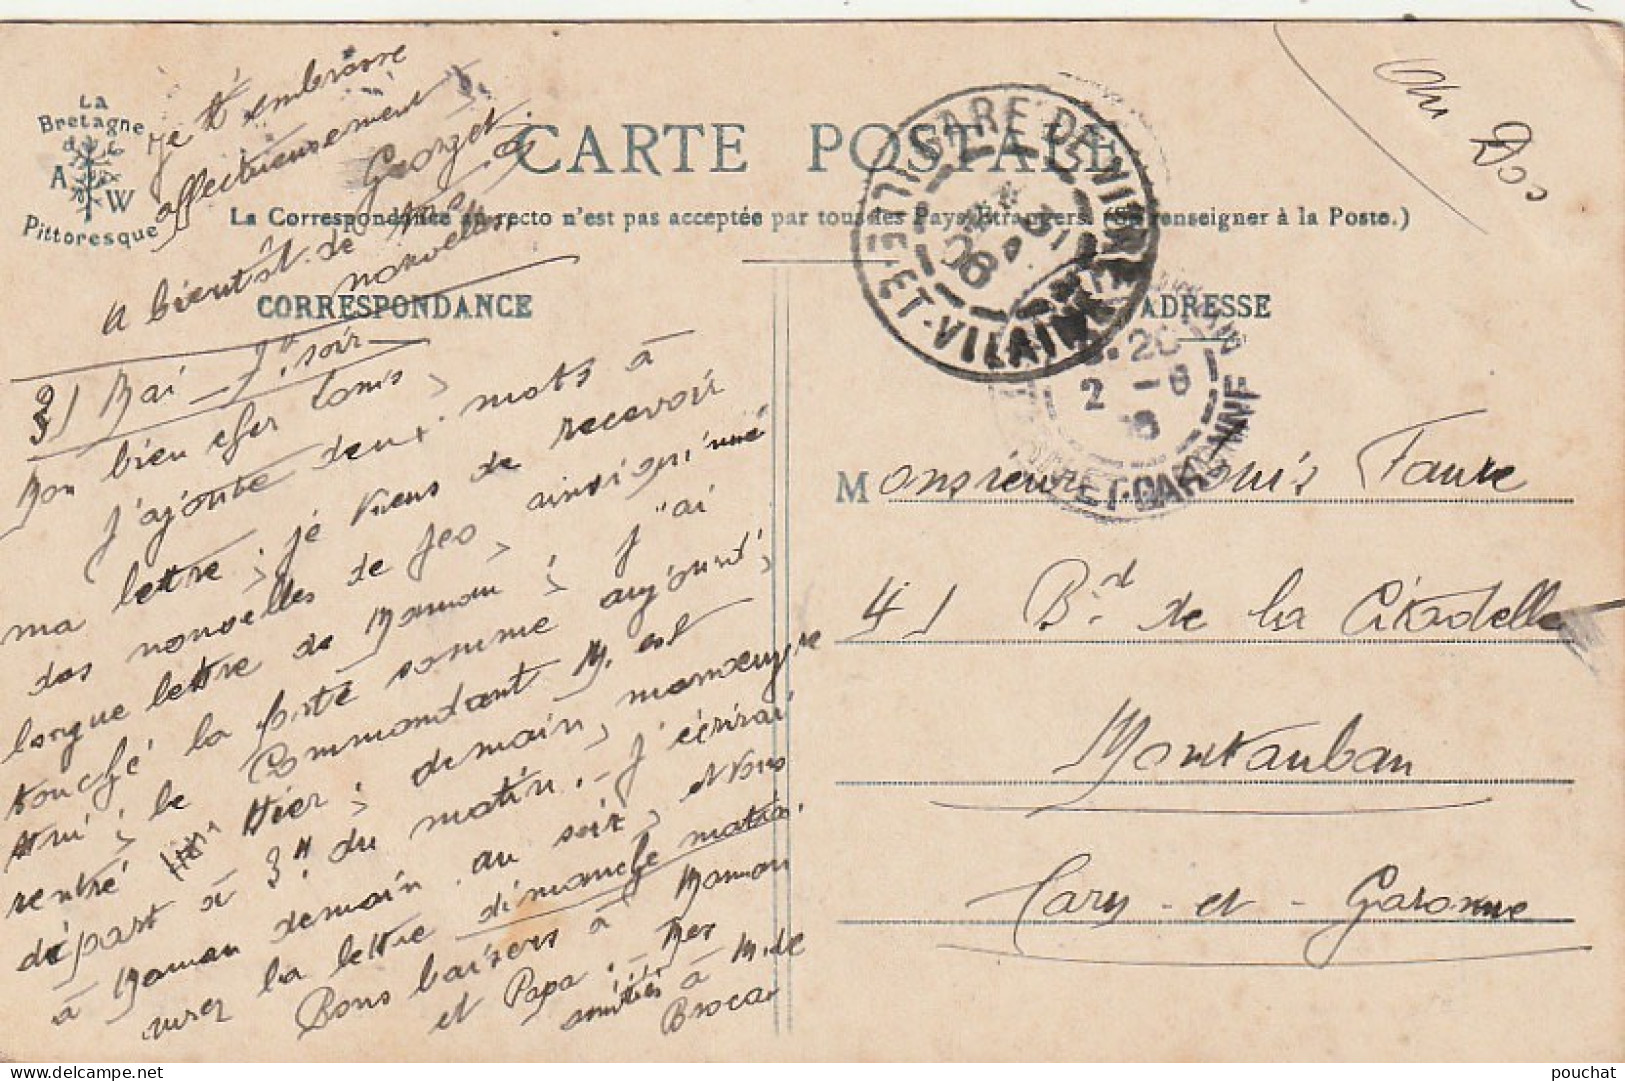 La
Bretagne
A W
Pittoresque
CARTE POSTALE
La Correspondance au recto n'est pas acceptée par tous les Pays Etrangers. (Se renseigner à la Poste.)
CORRESPONDANCE
ADRESSE
Au Dos
GARE DE VITRÉ
ILLE-ET-VILAINE
31
5
08
20
2 - 6
ET-GARONNE
31 Mai - 7h soir
Mon bien cher Louis,
J'ajoute deux mots à
ma lettre ; je viens de recevoir
des nouvelles de Geo, ainsi qu'une
longue lettre de Maman ; j'ai
touché la poste comme aujourd'
hui ; le Commandant M. est
rentré Hier ; demain, manoeuvre
départ à 3h du matin. - J'écrirai
à Maman demain au soir, et vous
aurez la lettre dimanche matin.
Bons baisers à Maman
et Papa. - Mes
amitiés à M. de
Broca
Je t'embrasse
affectueusement
Georget
A bientôt de tes
nouvelles
Monsieur Louis Faure
41 Bd. de la Citadelle
Montauban
Tarn - et - Garonne
pouchat